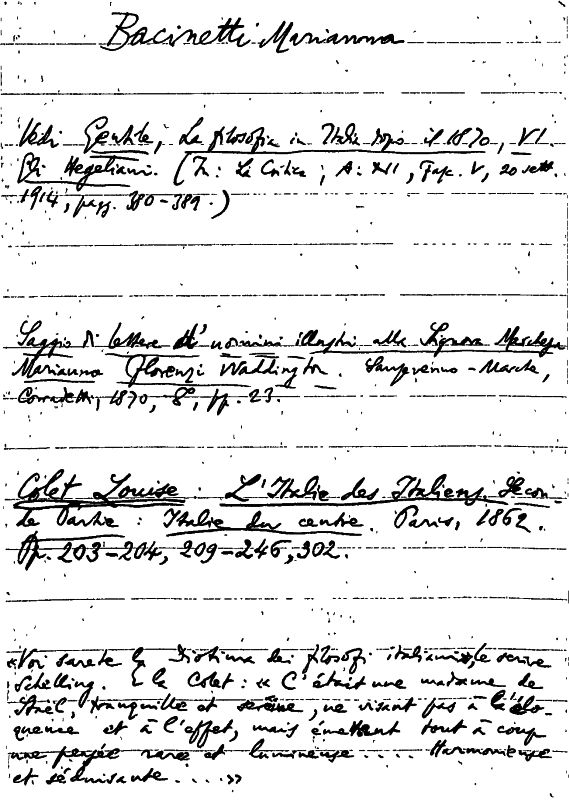 Bacinetti Marianna
Vedi Gentile, La filosofia in Italia dopo il 1870, VI.
Gli Hegeliani. (In: La Critica, A: XII, Fasc. V, 20 sett.
1914, pagg. 380-389.)
Saggio di lettere d'uomini illustri alla Signora Marchesa
Marianna Florenzi Waddington. Marche,
1870, 8°, pp. 23.
Colet Louise. L'Italie des Italiens. Secon-
de Partie: Italie du centre. Paris, 1862.
Pp. 203-204, 209-246, 302.
«Voi sarete la Diotima dei filosofi italiani», le scrive
Schelling. E la Colet: « C'était une madame de
Staël, tranquille et sereine, ne visant pas à l'élo-
quence et à l'effet, mais émettant tout à coup
une pensée rare et lumineuse .... Harmonieuse
et séduisante ....»